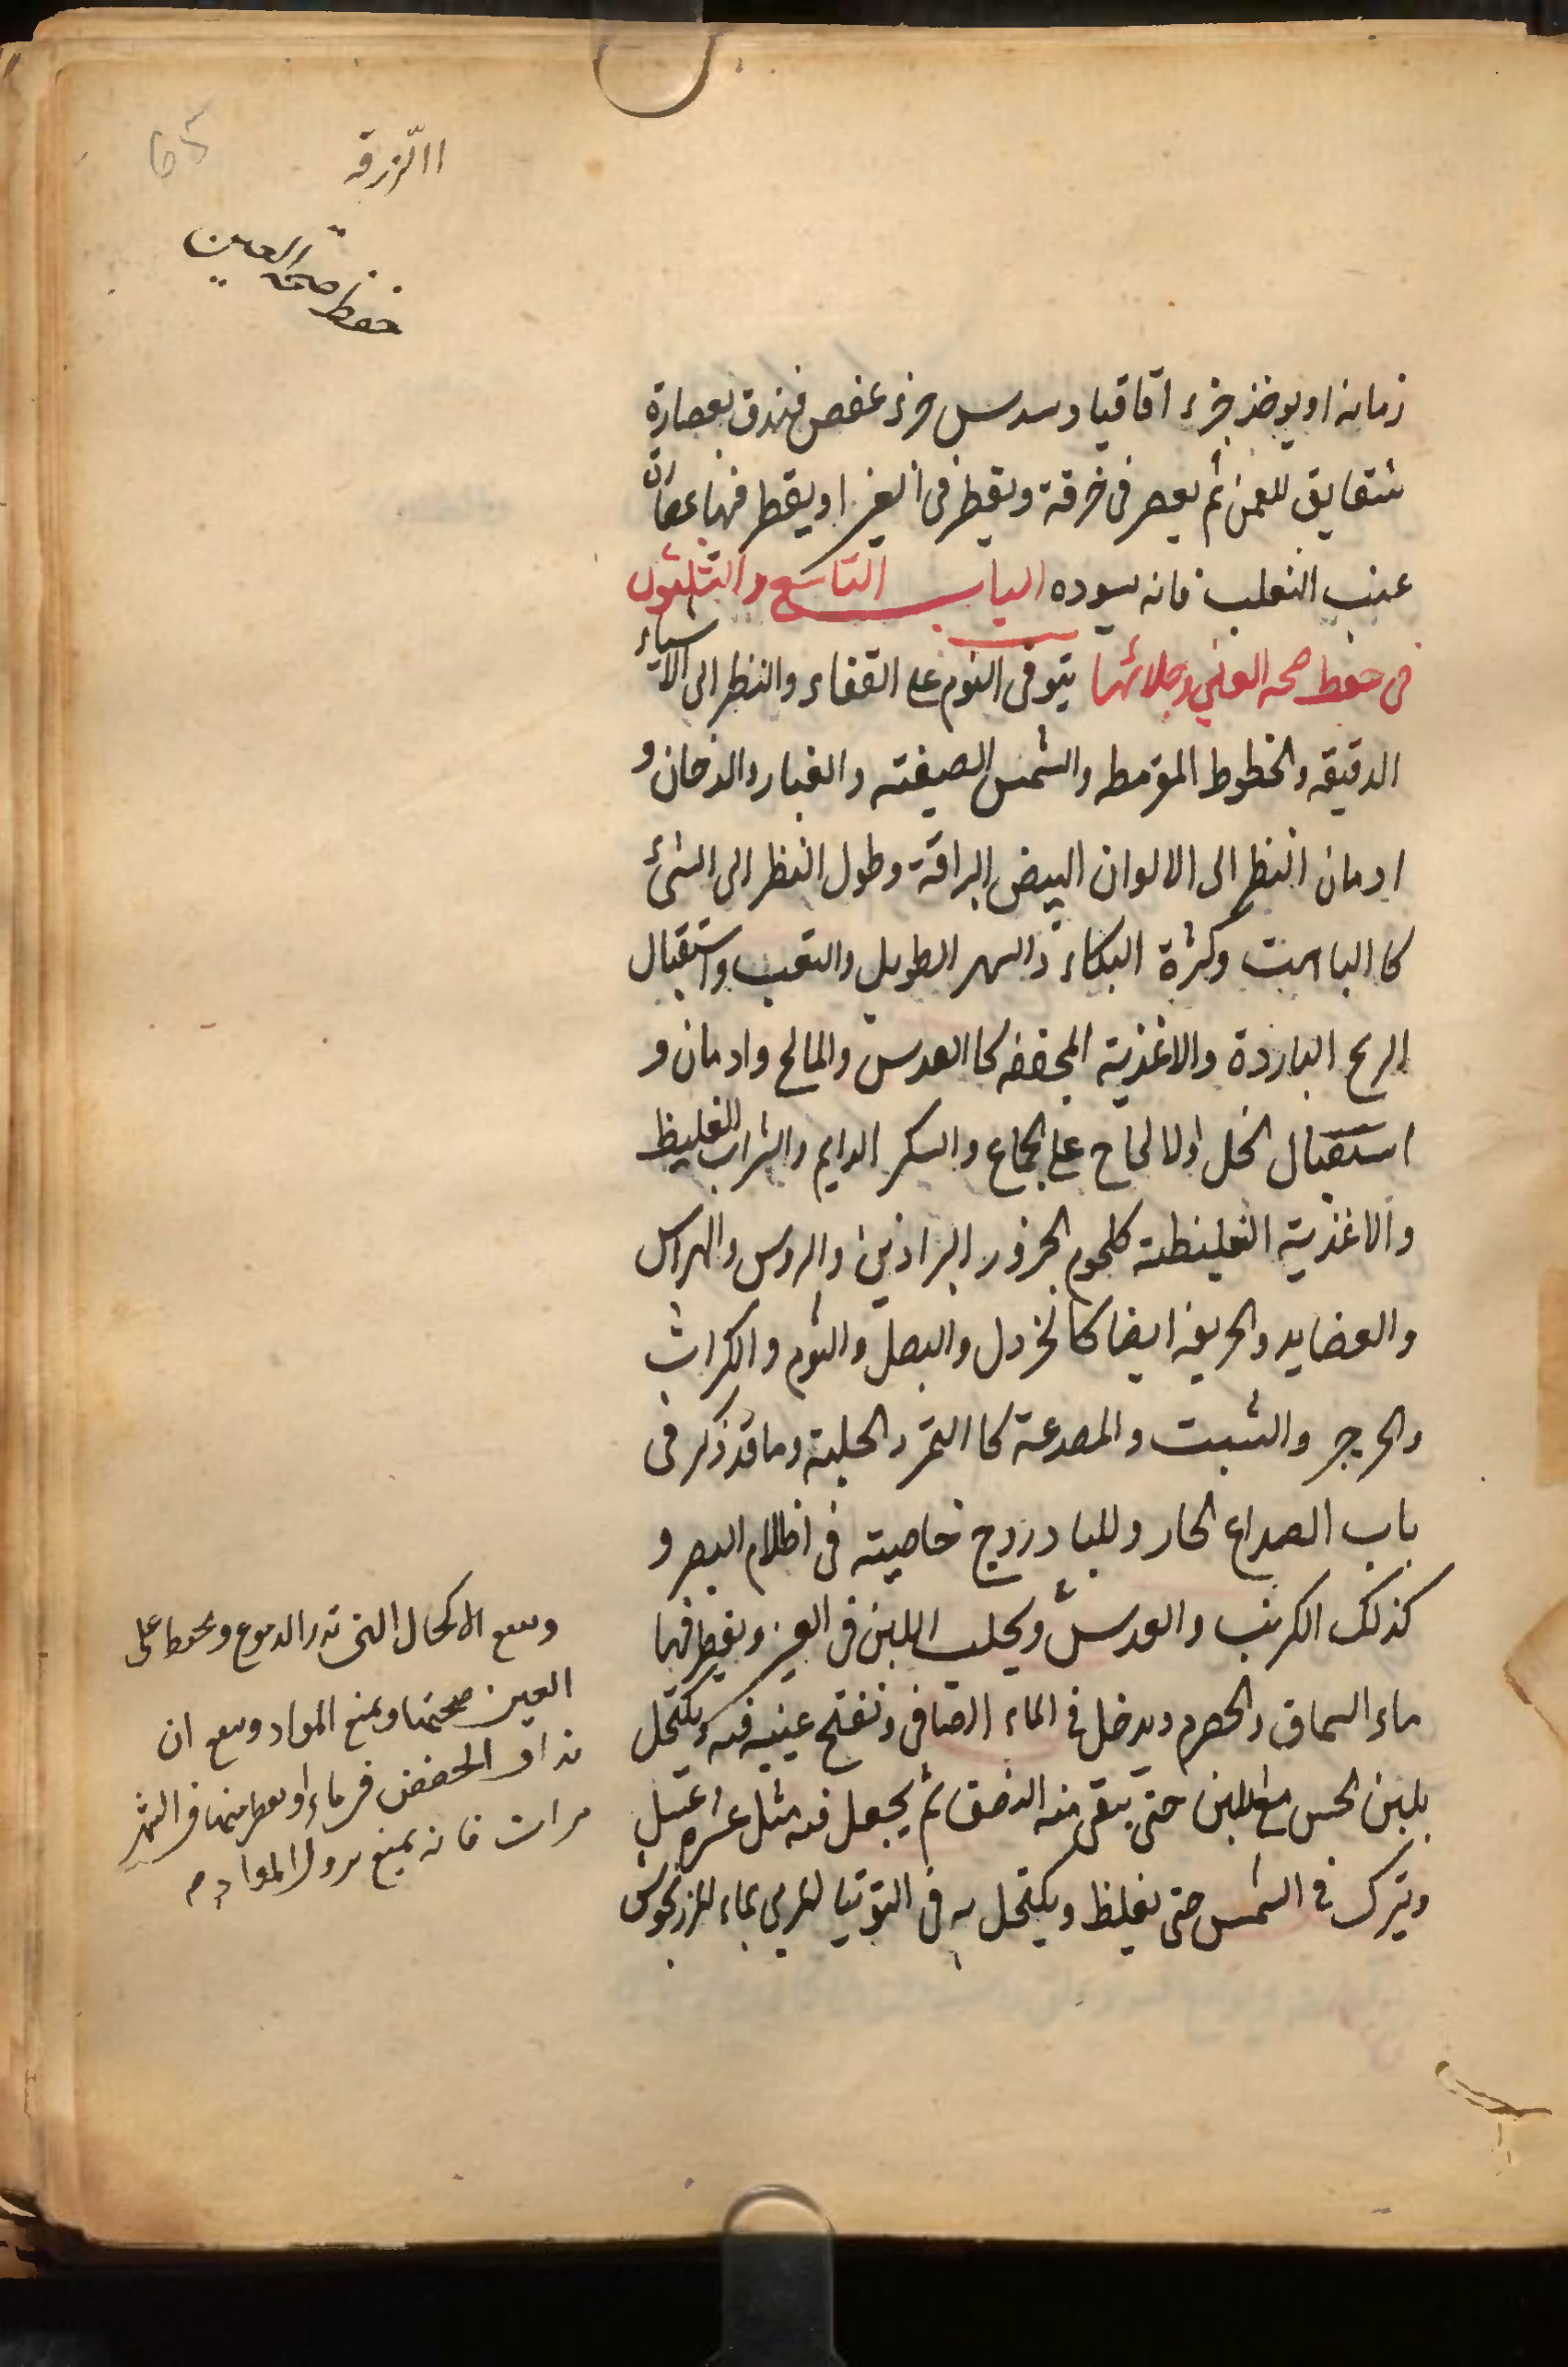 65
الزرقه
حفظ صحة العين
زمانه او يوخذ جزء اقاقيا وسدس جزء عفص فيندق بعصارة
شقايق للعين ثم يعصر فى خرقة ويقطر فى العين او يقطر فيها عصارة
عنب الثعلب فانه يسوده الباب التاسع والثلثون
فى حفظ صحه العين وجلائها يتوقى النوم على القفاء والنظر الى الاشياء
الدقيقه والخطوط المقرمطه والشمس الصيفته والغبار والدخان و
ادمان النظر الى الالوان البيض البراقة وطول النظر الى الشئ
كا الباهت وكثرة البكاء والسهر الطويل والتعب واستقبال
الريح الباردة والاغذية المجففه كا العدس والمالح وادمان و
استقبال الخل والالحاح على الجماع والسكر الدايم والشراب الغليظ
والاغذية الغليظة كلحوم الجزور البراذين والروس والهراس
والعضايد والحريفه ايضا كالخردل والبصل والثوم والكراث
والجرجر والشبت والمصدعة كا التمر والحلبة وما قد ذكر فى
باب الصداع الحار وللبادروج خاصيته فى اظلام البصر و
كذلك الكرنب والعدس ويحلب اللبن فى العين ويقطر فيها
ماء السماق والحصرم ويدخل فى الماء الصافى وتفتح عينيه فيه ويكتحل
بلبن الخس مع اللبن حتى يبقى منه النصف ثم يجعل فيه مثل عشره عسل
ويترك فى الشمس حتى يغلظ ويكتحل به فى التوتيا المربى بماء المرزنجوش
وينفع الاكحال التى تدر الدموع ويحفظ على
العين صحتها ويمنع المواد وينفع ان
يداف الحضض فى ماء ويقطر منها فى الشهر
مرات فانه يمنع نزول المواد